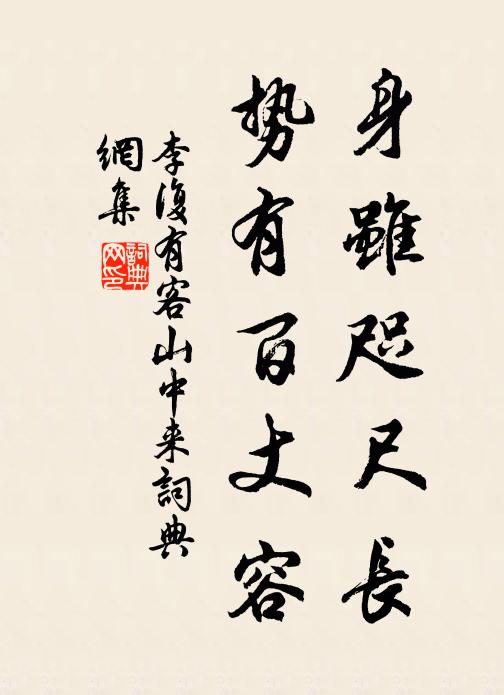 身雖咫尺長
势有百丈容
李復有客山中来詞典
網集
詞典网印